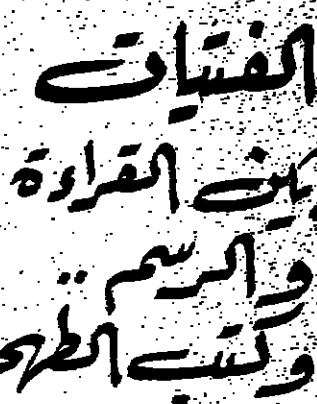 الفتيات
بين القراءة
والرسم ..
وكتب الطهـ